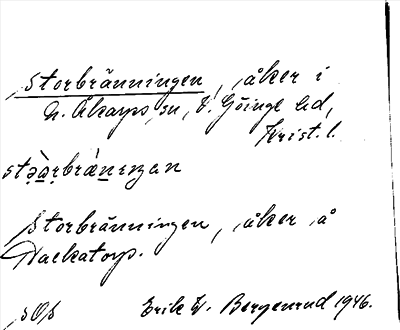 Storbränningen, åker i
N. Åkarps sn, V. Göinge hd,
Krist. l.
Storbränningen, åker å
Mackatorp.
Erik W. Bergenrud 1946.